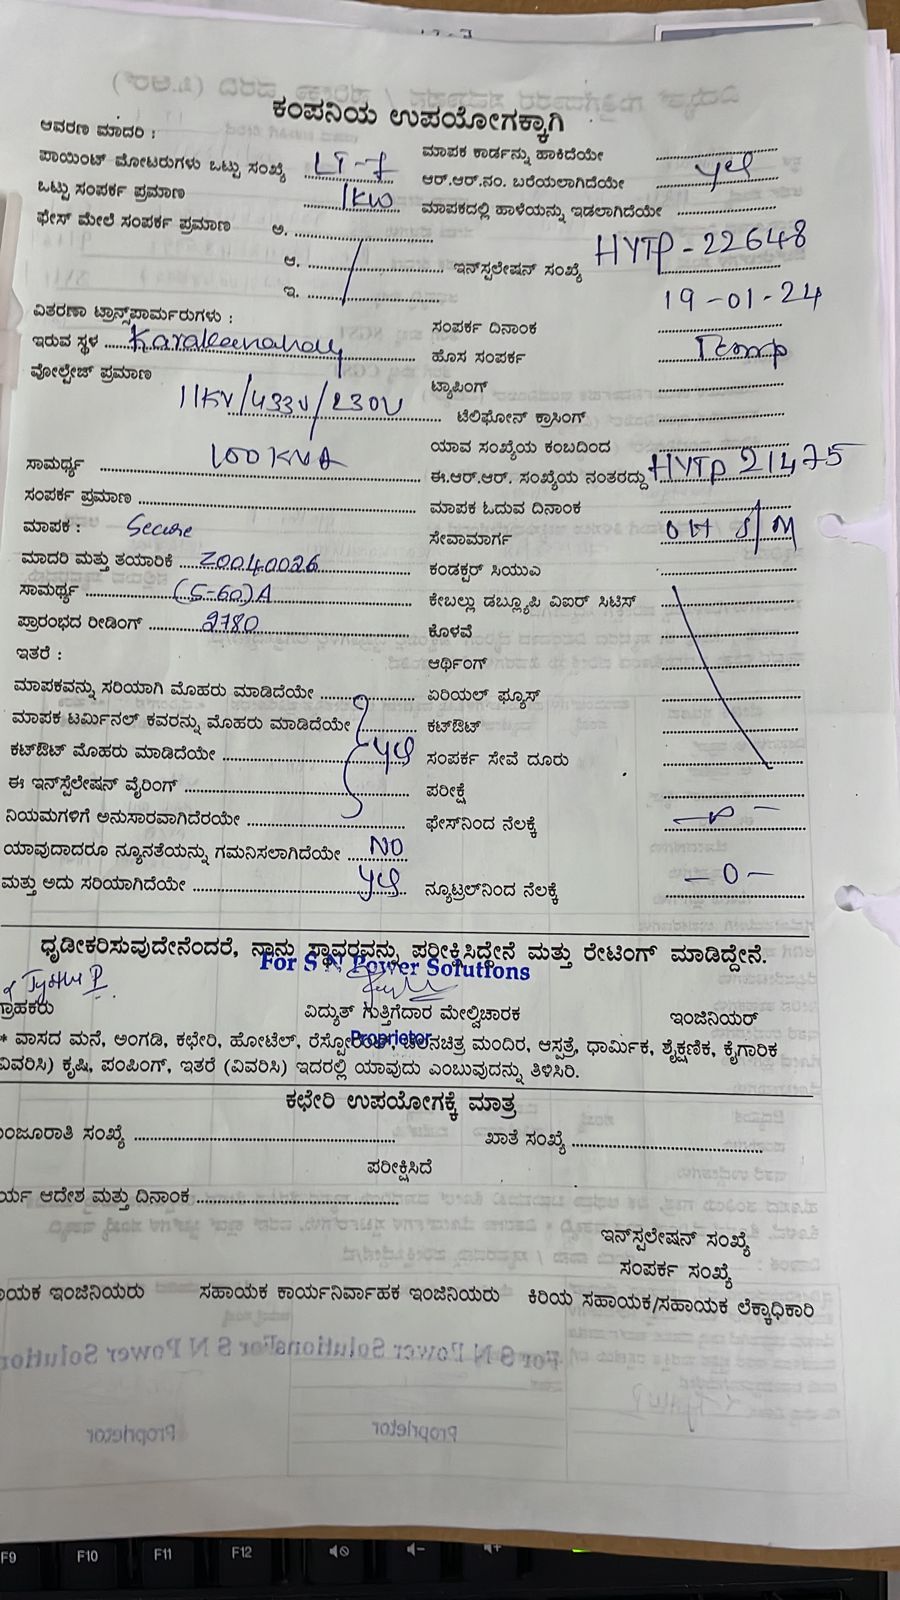 ಕಂಪನಿಯ ಉಪಯೋಗಕ್ಕಾಗಿ
ಆವರಣ ಮಾದರಿ :
ಪಾಯಿಂಟ್ ಮೋಟರುಗಳು ಒಟ್ಟು ಸಂಖ್ಯೆ LT-7
ಒಟ್ಟು ಸಂಪರ್ಕ ಪ್ರಮಾಣ 1KW
ಫೇಸ್ ಮೇಲೆ ಸಂಪರ್ಕ ಪ್ರಮಾಣ ಅ.
ಆ.
ಇ.
ವಿತರಣಾ ಟ್ರಾನ್ಸ್‌ಪಾರ್ಮರುಗಳು :
ಇರುವ ಸ್ಥಳ
ವೋಲ್ಟೇಜ್ ಪ್ರಮಾಣ
11KV/433V/230V
ಸಾಮರ್ಥ್ಯ 100 KVA
ಸಂಪರ್ಕ ಪ್ರಮಾಣ
ಮಾಪಕ : Secure
ಮಾದರಿ ಮತ್ತು ತಯಾರಿಕೆ Z0040026
ಸಾಮರ್ಥ್ಯ (5-60)A
ಪ್ರಾರಂಭದ ರೀಡಿಂಗ್ 2780
ಇತರೆ :
ಮಾಪಕವನ್ನು ಸರಿಯಾಗಿ ಮೊಹರು ಮಾಡಿದೆಯೇ
ಮಾಪಕ ಟರ್ಮಿನಲ್ ಕವರನ್ನು ಮೊಹರು ಮಾಡಿದೆಯೇ
ಕಟ್‌ಔಟ್ ಮೊಹರು ಮಾಡಿದೆಯೇ yes
ಈ ಇನ್‌ಸ್ಪೆಲೇಶನ್ ವೈರಿಂಗ್
ನಿಯಮಗಳಿಗೆ ಅನುಸಾರವಾಗಿದೆರಯೇ
ಯಾವುದಾದರೂ ನ್ಯೂನತೆಯನ್ನು ಗಮನಿಸಲಾಗಿದೆಯೇ NO
ಮತ್ತು ಅದು ಸರಿಯಾಗಿದೆಯೇ yes
ಮಾಪಕ ಕಾರ್ಡನ್ನು ಹಾಕಿದೆಯೇ
ಆರ್.ಆರ್.ನಂ. ಬರೆಯಲಾಗಿದೆಯೇ yes
ಮಾಪಕದಲ್ಲಿ ಹಾಳೆಯನ್ನು ಇಡಲಾಗಿದೆಯೇ
ಇನ್‌ಸ್ಪಲೇಷನ್ ಸಂಖ್ಯೆ HYTP-22648
19-01-24
ಸಂಪರ್ಕ ದಿನಾಂಕ
ಹೊಸ ಸಂಪರ್ಕ Temp
ಟ್ಯಾಪಿಂಗ್
ಟೆಲಿಫೋನ್ ಕ್ರಾಸಿಂಗ್
ಯಾವ ಸಂಖ್ಯೆಯ ಕಂಬದಿಂದ
ಈ.ಆರ್.ಆರ್. ಸಂಖ್ಯೆಯ ನಂತರದ್ದು HYTP 21475
ಮಾಪಕ ಓದುವ ದಿನಾಂಕ
ಸೇವಾಮಾರ್ಗ OH S/M
ಕಂಡಕ್ಟರ್ ಸಿಯುಎ
ಕೇಬಲ್ಲು ಡಬ್ಲ್ಯೂಪಿ ವಿಐರ್ ಸಿಟಿಸ್
ಕೊಳವೆ
ಆರ್ಥಿಂಗ್
ಏರಿಯಲ್ ಫ್ಯೂಸ್
ಕಟ್‌ಔಟ್
ಸಂಪರ್ಕ ಸೇವೆ ದೂರು
ಪರೀಕ್ಷೆ
ಫೇಸ್‌ನಿಂದ ನೆಲಕ್ಕೆ
ನ್ಯೂಟ್ರಲ್‌ನಿಂದ ನೆಲಕ್ಕೆ -0-
ಧೃಡೀಕರಿಸುವುದೇನೆಂದರೆ, ನ್ನಾನು ಸ್ಥಾವರವನ್ನು ಪರೀಕ್ಷಿಸಿದ್ದೇನೆ ಮತ್ತು ರೇಟಿಂಗ್ ಮಾಡಿದ್ದೇನೆ.
For S N Power Solutions
ಗ್ರಾಹಕರು ವಿದ್ಯುತ್ ಗುತ್ತಿಗೆದಾರ ಮೇಲ್ವಿಚಾರಕ ಇಂಜಿನಿಯರ್
Proprietor
* ವಾಸದ ಮನೆ, ಅಂಗಡಿ, ಕಛೇರಿ, ಹೋಟೆಲ್, ಚಲನಚಿತ್ರ ಮಂದಿರ, ಆಸ್ಪತ್ರೆ, ಧಾರ್ಮಿಕ, ಶೈಕ್ಷಣಿಕ, ಕೈಗಾರಿಕ
(ವಿವರಿಸಿ) ಕೃಷಿ, ಪಂಪಿಂಗ್, ಇತರೆ (ವಿವರಿಸಿ) ಇದರಲ್ಲಿ ಯಾವುದು ಎಂಬುವುದನ್ನು ತಿಳಿಸಿರಿ.
ಕಛೇರಿ ಉಪಯೋಗಕ್ಕೆ ಮಾತ್ರ
ಂಜೂರಾತಿ ಸಂಖ್ಯೆ ಖಾತೆ ಸಂಖ್ಯೆ
ಪರೀಕ್ಷಿಸಿದೆ
ರ್ಯ ಆದೇಶ ಮತ್ತು ದಿನಾಂಕ
ಇನ್‌ಸ್ಪಲೇಷನ್ ಸಂಖ್ಯೆ
ಸಂಪರ್ಕ ಸಂಖ್ಯೆ
ಾಯಕ ಇಂಜಿನಿಯರು ಸಹಾಯಕ ಕಾರ್ಯನಿರ್ವಾಹಕ ಇಂಜಿನಿಯರು ಕಿರಿಯ ಸಹಾಯಕ/ಸಹಾಯಕ ಲೆಕ್ಕಾಧಿಕಾರಿ
F9 F10 F11 F12